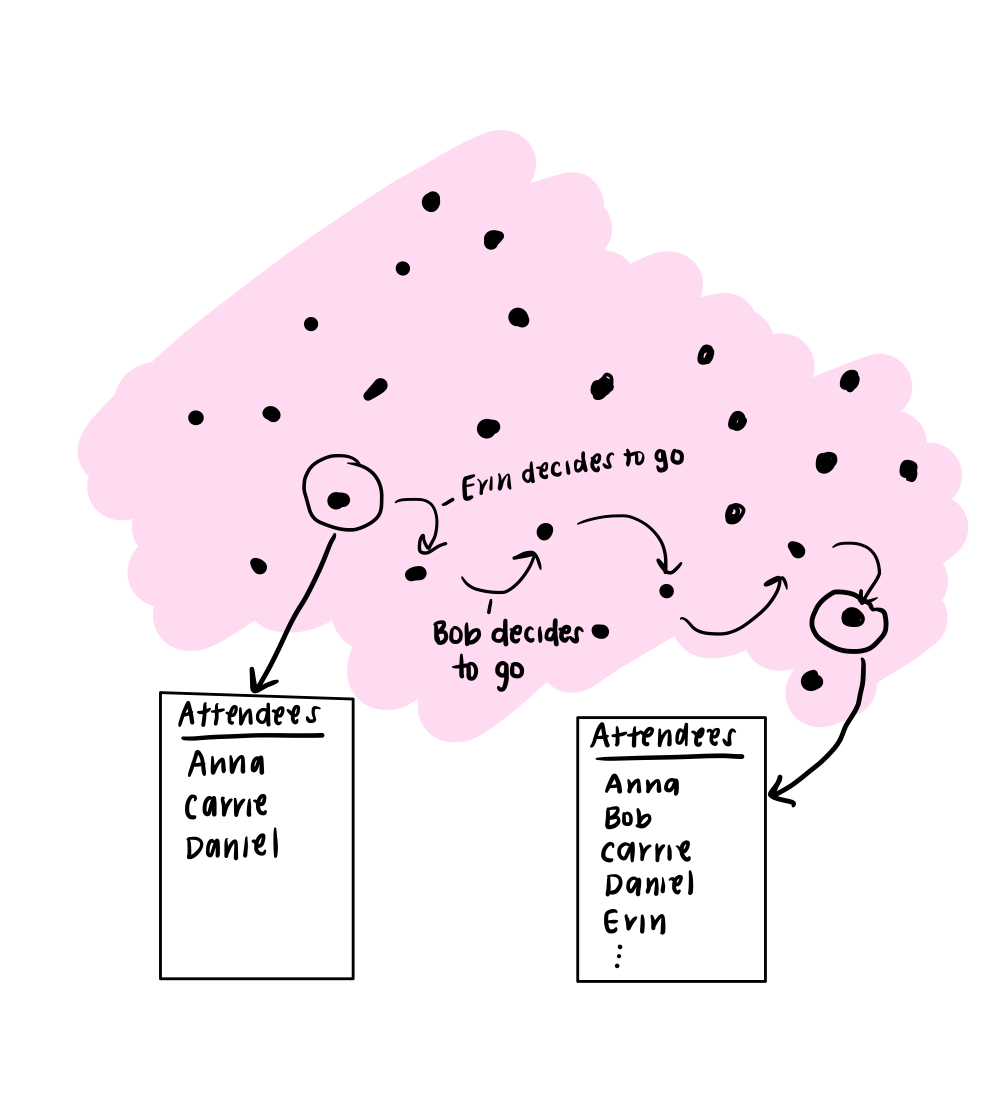 Erin decides to go
Bob decides
to go
Attendees
Anna
Carrie
Daniel
Attendees
Anna
Bob
Carrie
Daniel
Erin
⋮